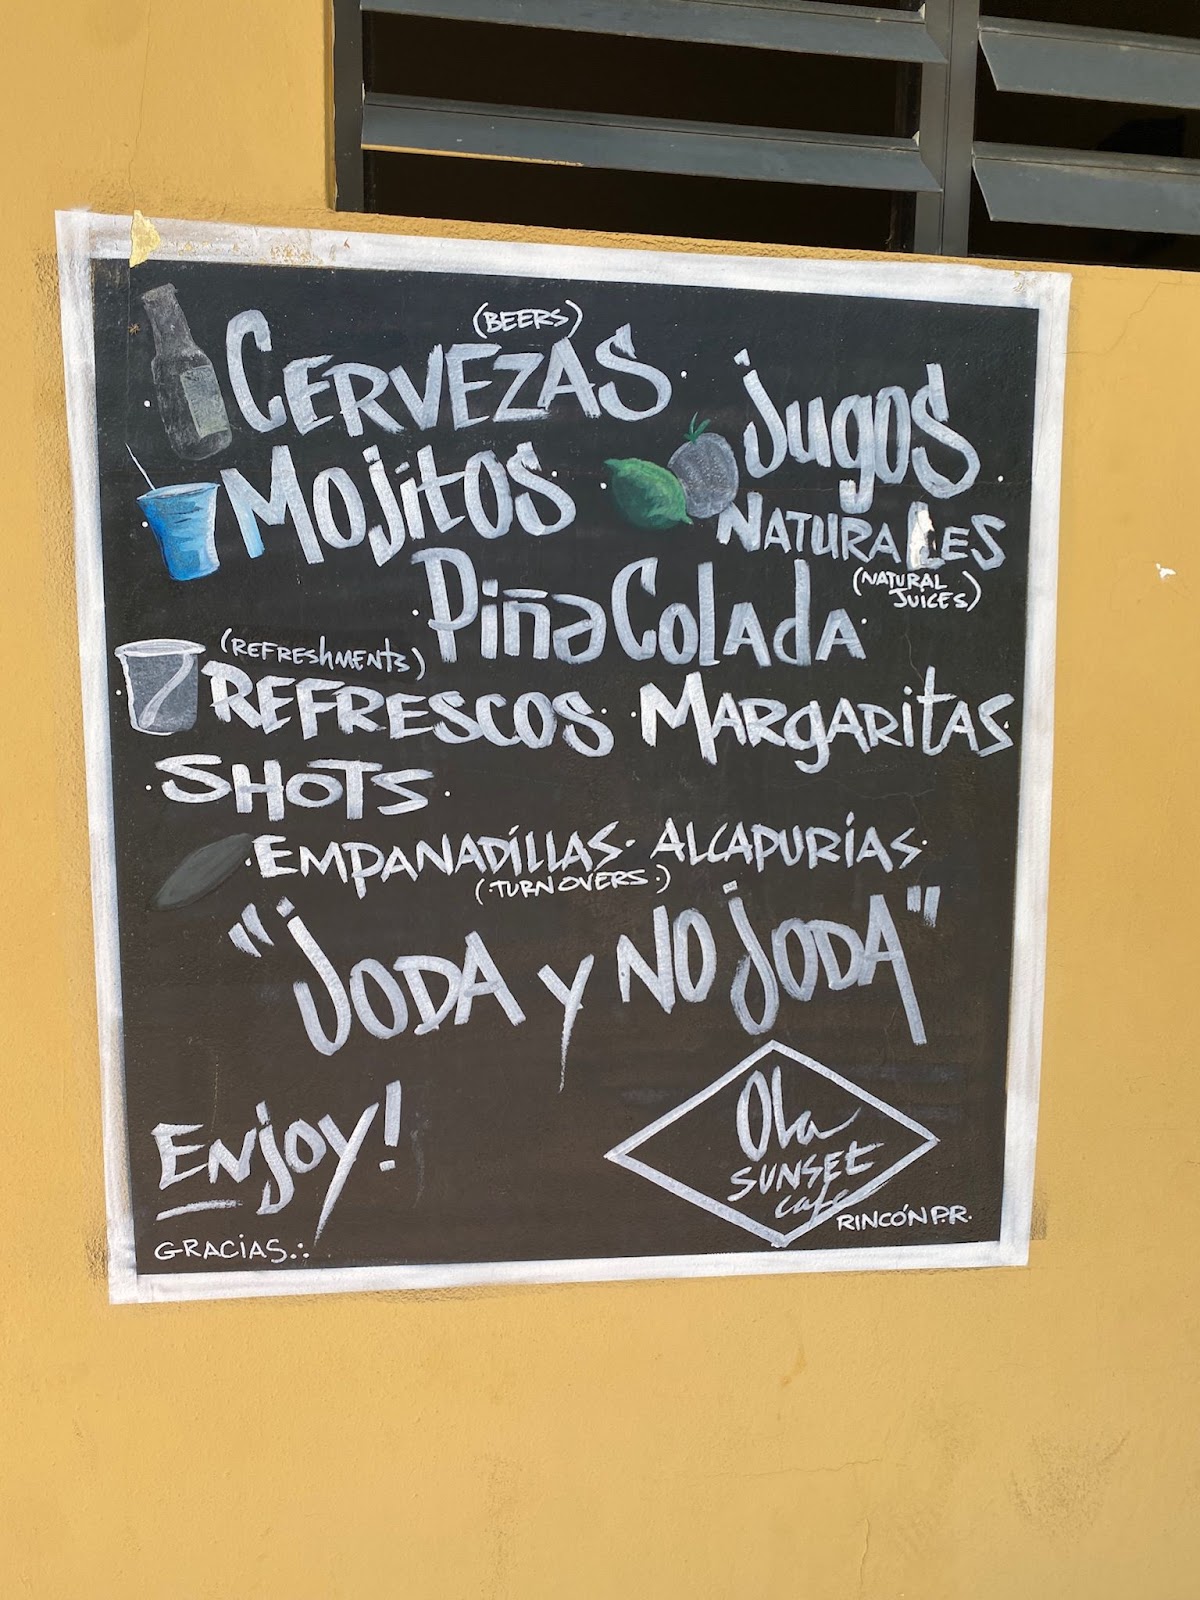 (BEERS)
CERVEZAS.
MOJITOS.
JUGOS
NATURALES
(NATURAL
JUICES)
PIÑA COLADA.
(REFRESHMENTS)
REFRESCOS.
MARGARITAS.
SHOTS.
EMPANADILLAS. ALCAPURIAS.
(TURNOVERS.)
"JODA Y NO JODA"
ENJOY!
GRACIAS.:
Ola
SUNSEt
cafe
RINCÓN P.R.